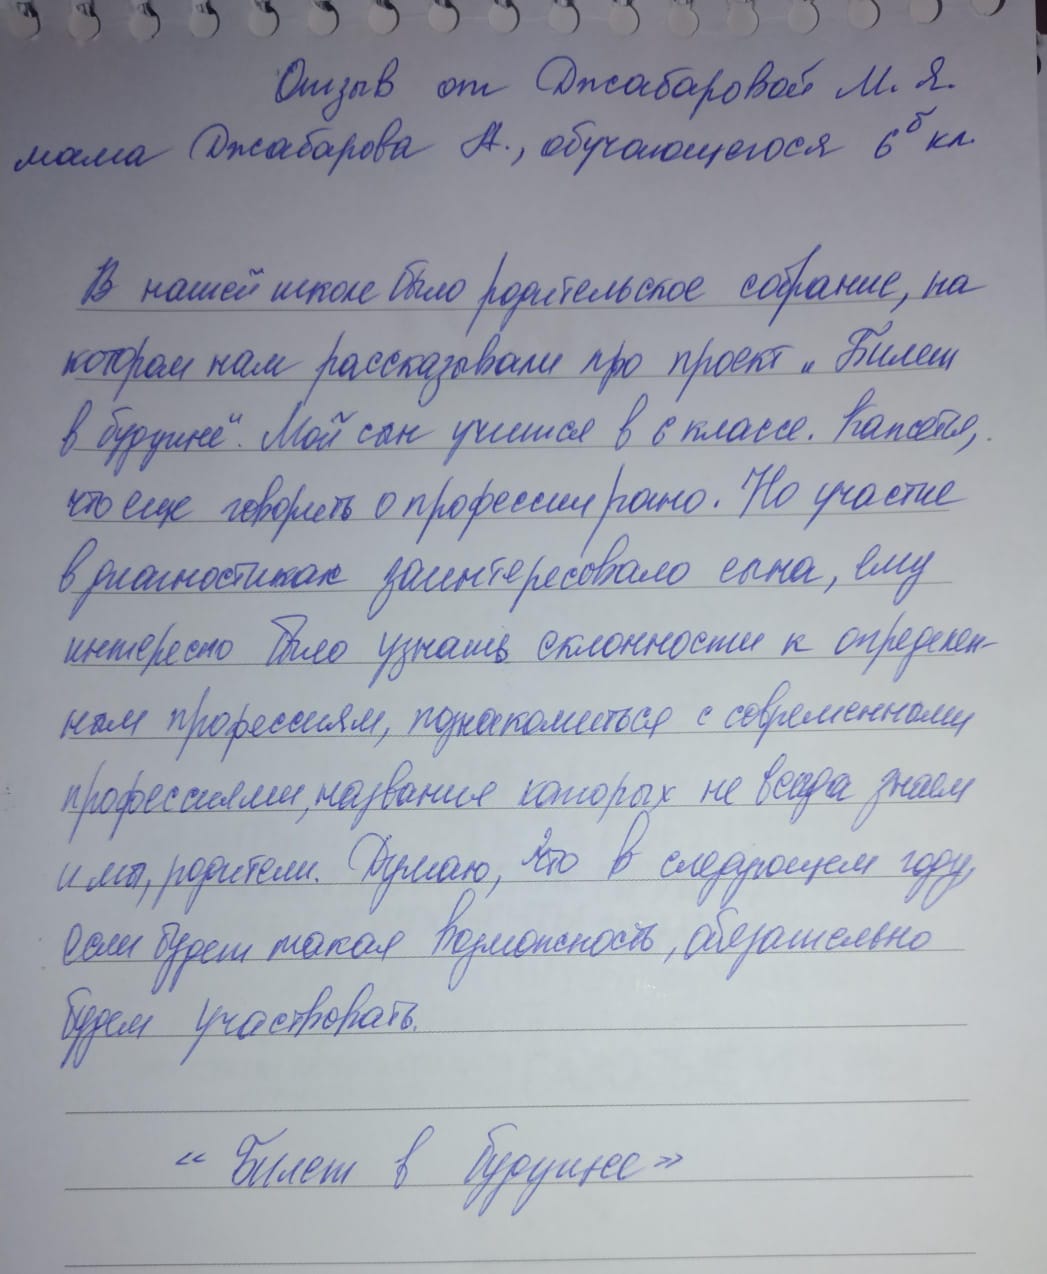 Отзыв от Джабаровой М. Я.
мама Джабарова А., обучающегося 6б кл.
В нашей школе было родительское собрание, на
котором нам рассказывали про проект „Билет
в будущее". Мой сын учится в 6 классе. Кажется,
что еще говорить о профессии рано. Но участие
в диагностиках заинтересовало сына, ему
интересно было узнать склонности к определен-
ным профессиям, познакомиться с современными
профессиями, название которых не всегда знаем
и мы, родители. Думаю, что в следующем году,
если будет такая возможность, обязательно
будем участвовать.
«Билет в будущее»